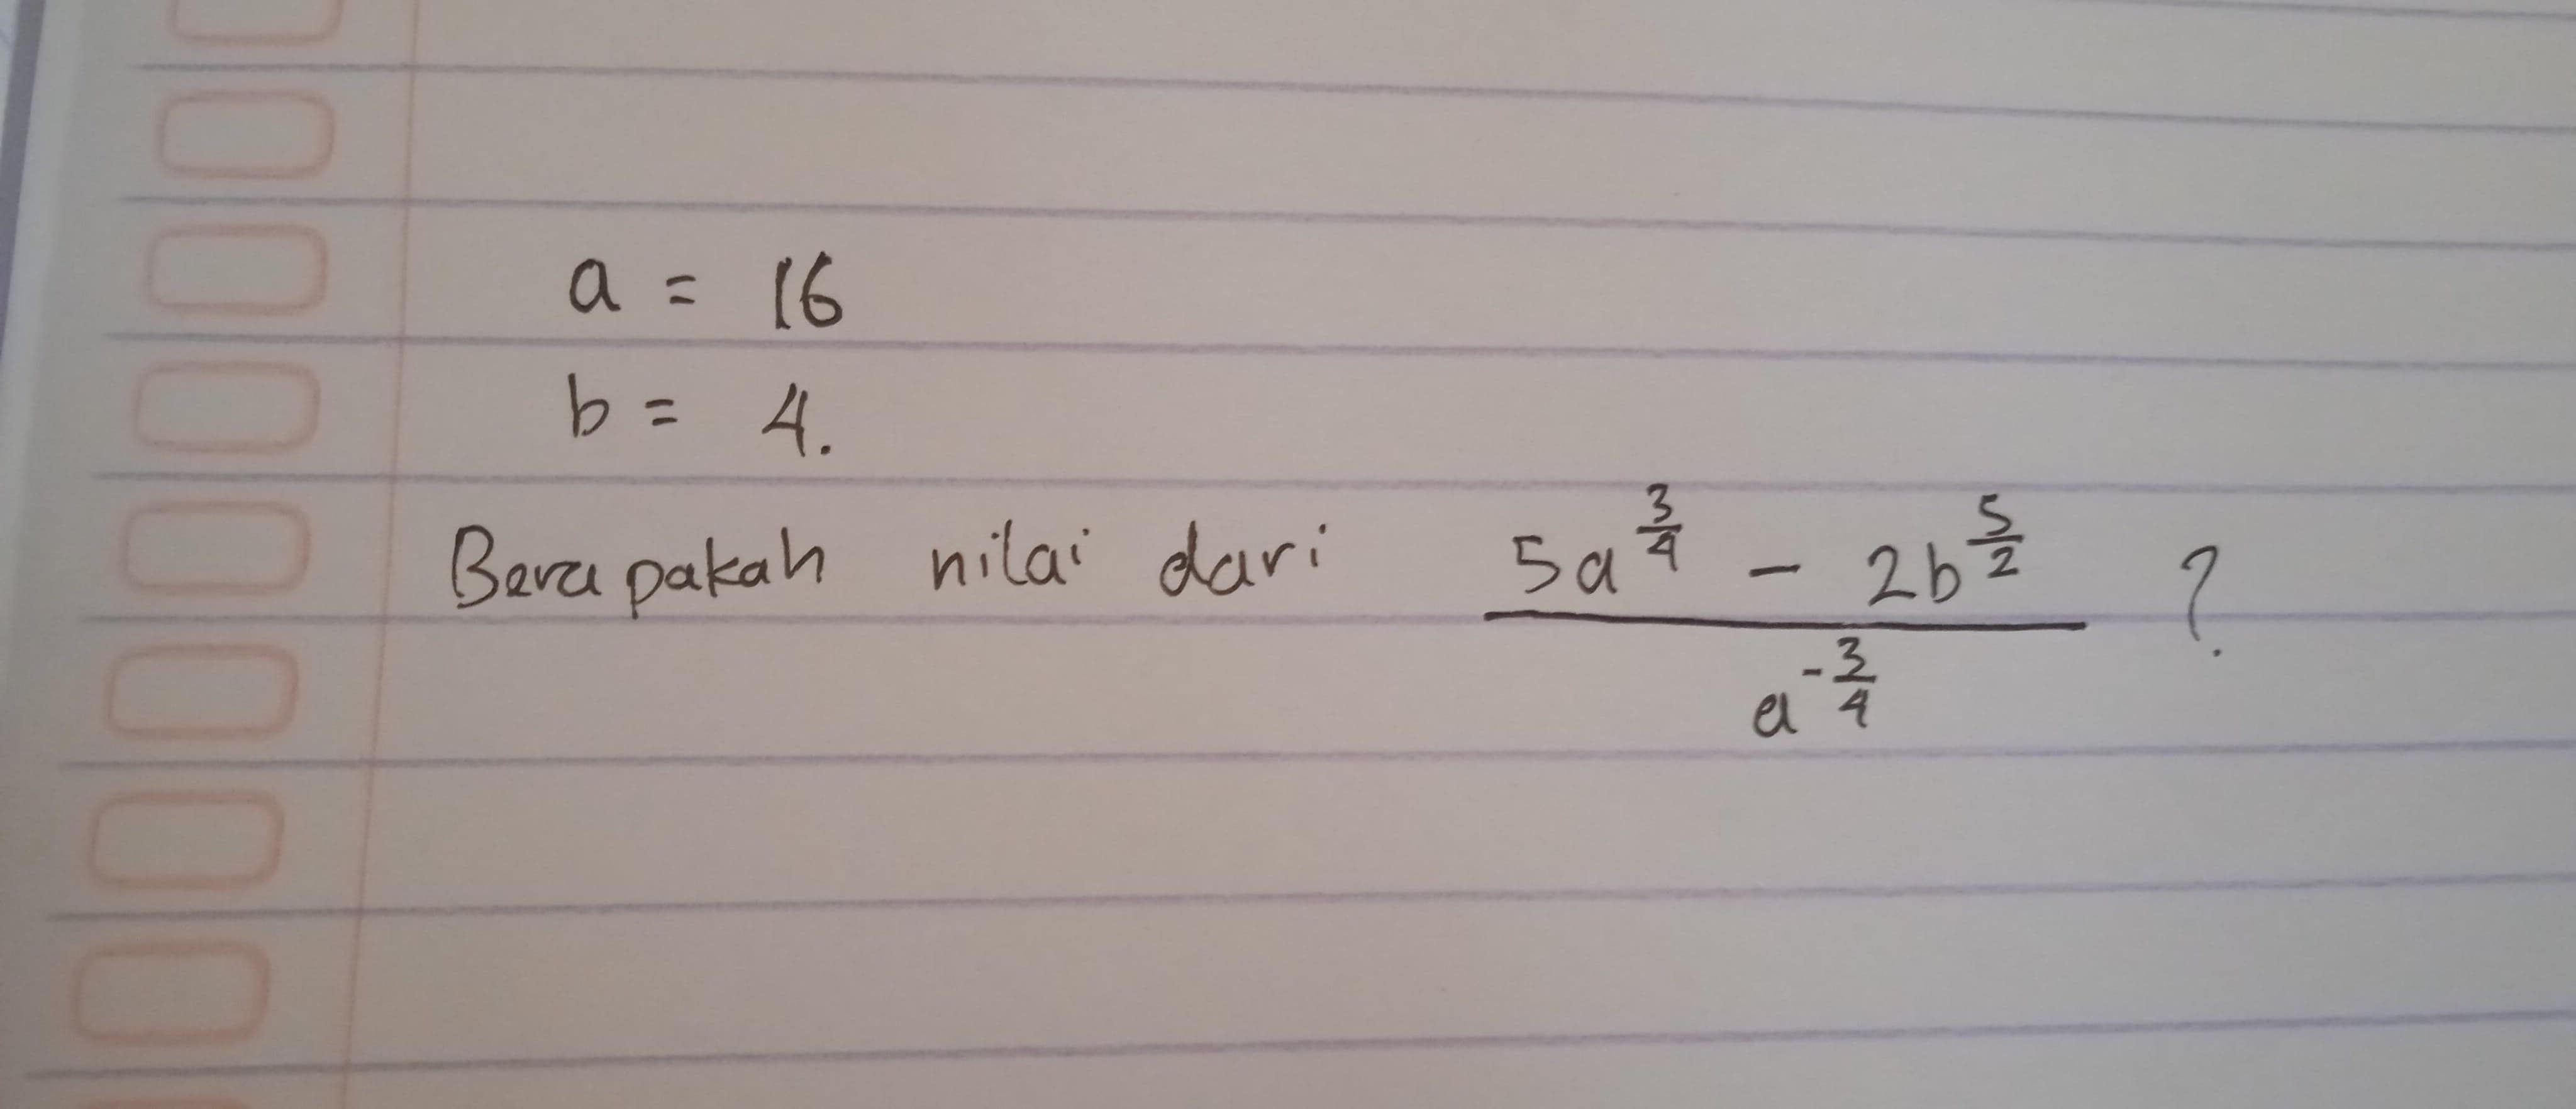 a = 16
b = 4.
Berapakah nilai dari \frac{5a^{\frac{3}{4}} - 2b^{\frac{5}{2}}}{a^{-\frac{3}{4}}} ?